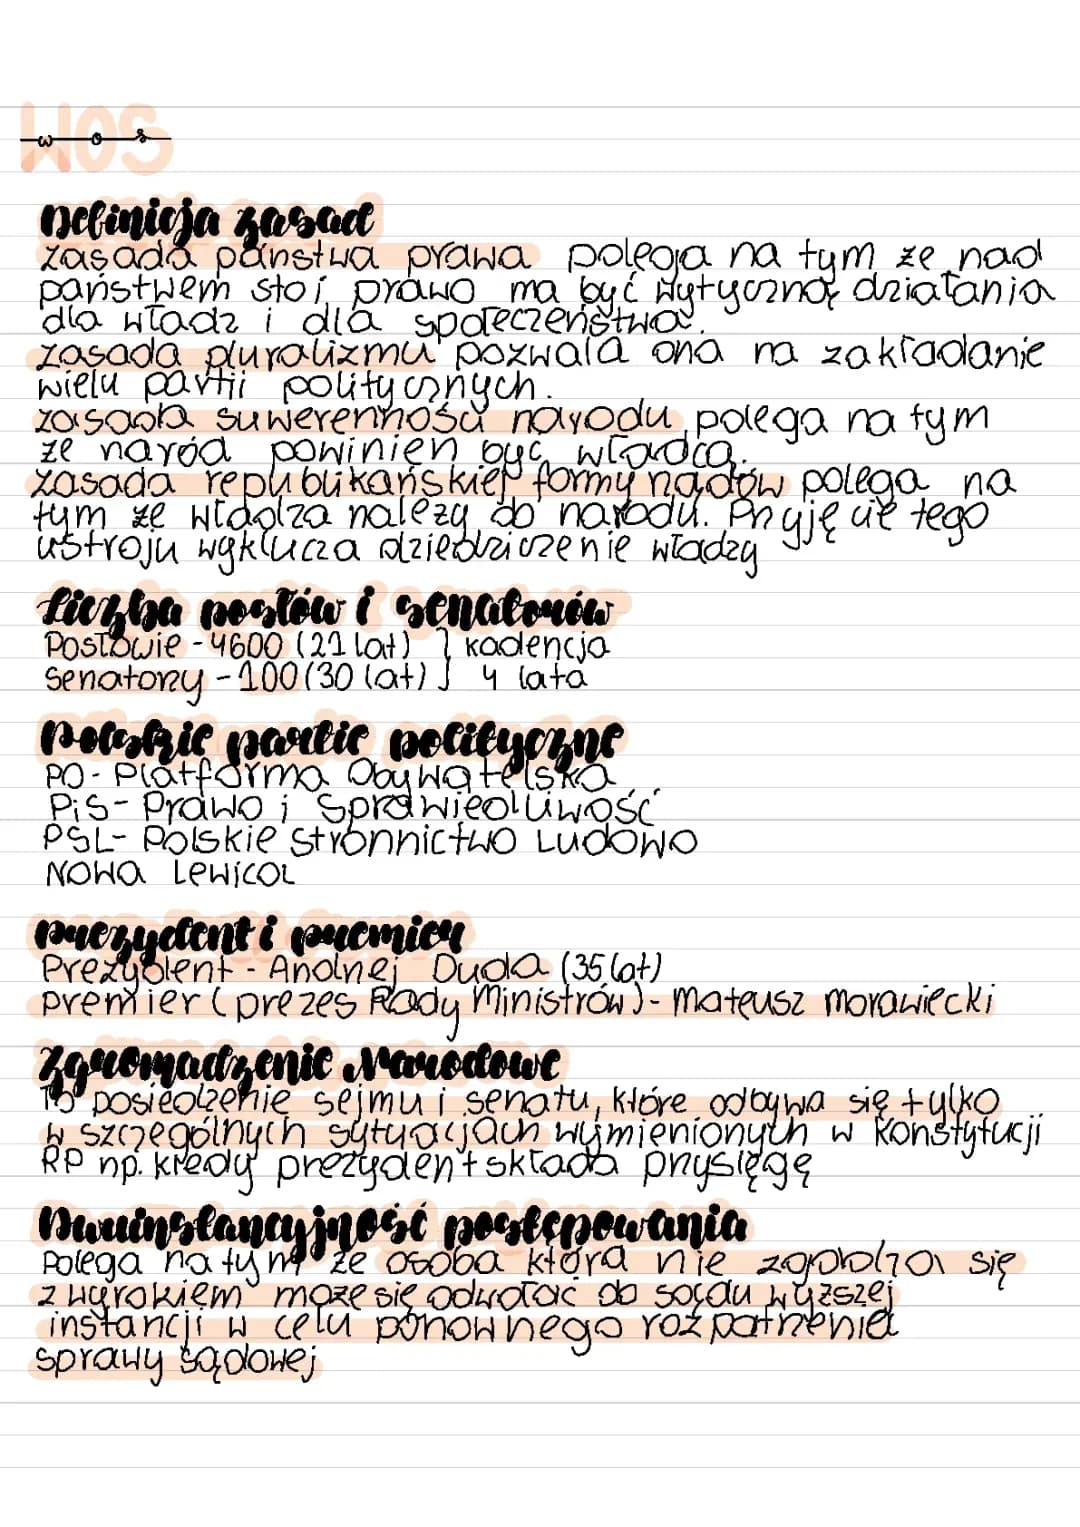 WOS
w o s
Definicja zasad
zasada państwa prawa polega na tym że nad
państwem stoi prawo ma być wytyczną działania
dla władz i dla społeczeństwa.
zasada pluralizmu pozwala ona na zakładanie
wielu partii politycznych.
zasada suwerenności narodu polega na tym
że naród powinien być władcą.
zasada republikańskiej formy rządów polega na
tym że władza należy do narodu. Przyjęcie tego
ustroju wyklucza dziedziczenie władzy
Liczba posłów i senatorów
Posłowie - 4600 (21 lat) } kadencja
Senatorzy - 100 (30 lat) } 4 lata
Polskie partie polityczne
PO - Platforma Obywatelska
PiS - Prawo i Sprawiedliwość
PSL - Polskie Stronnictwo Ludowo
Nowa Lewica
Prezydent i premier
Prezydent - Andrzej Duda (35 lat)
premier (prezes Rady Ministrów) - Mateusz Morawiecki
Zgromadzenie Narodowe
To posiedzenie sejmu i senatu, które odbywa się tylko
w szczególnych sytuacjach wymienionych w Konstytucji
RP np. kiedy prezydent składa przysięgę
Dwuinstancyjność postępowania
Polega na tym że osoba która nie zgadza się
z wyrokiem może się odwołać do sądu wyższej
instancji w celu ponownego rozpatrzenia
sprawy sądowej